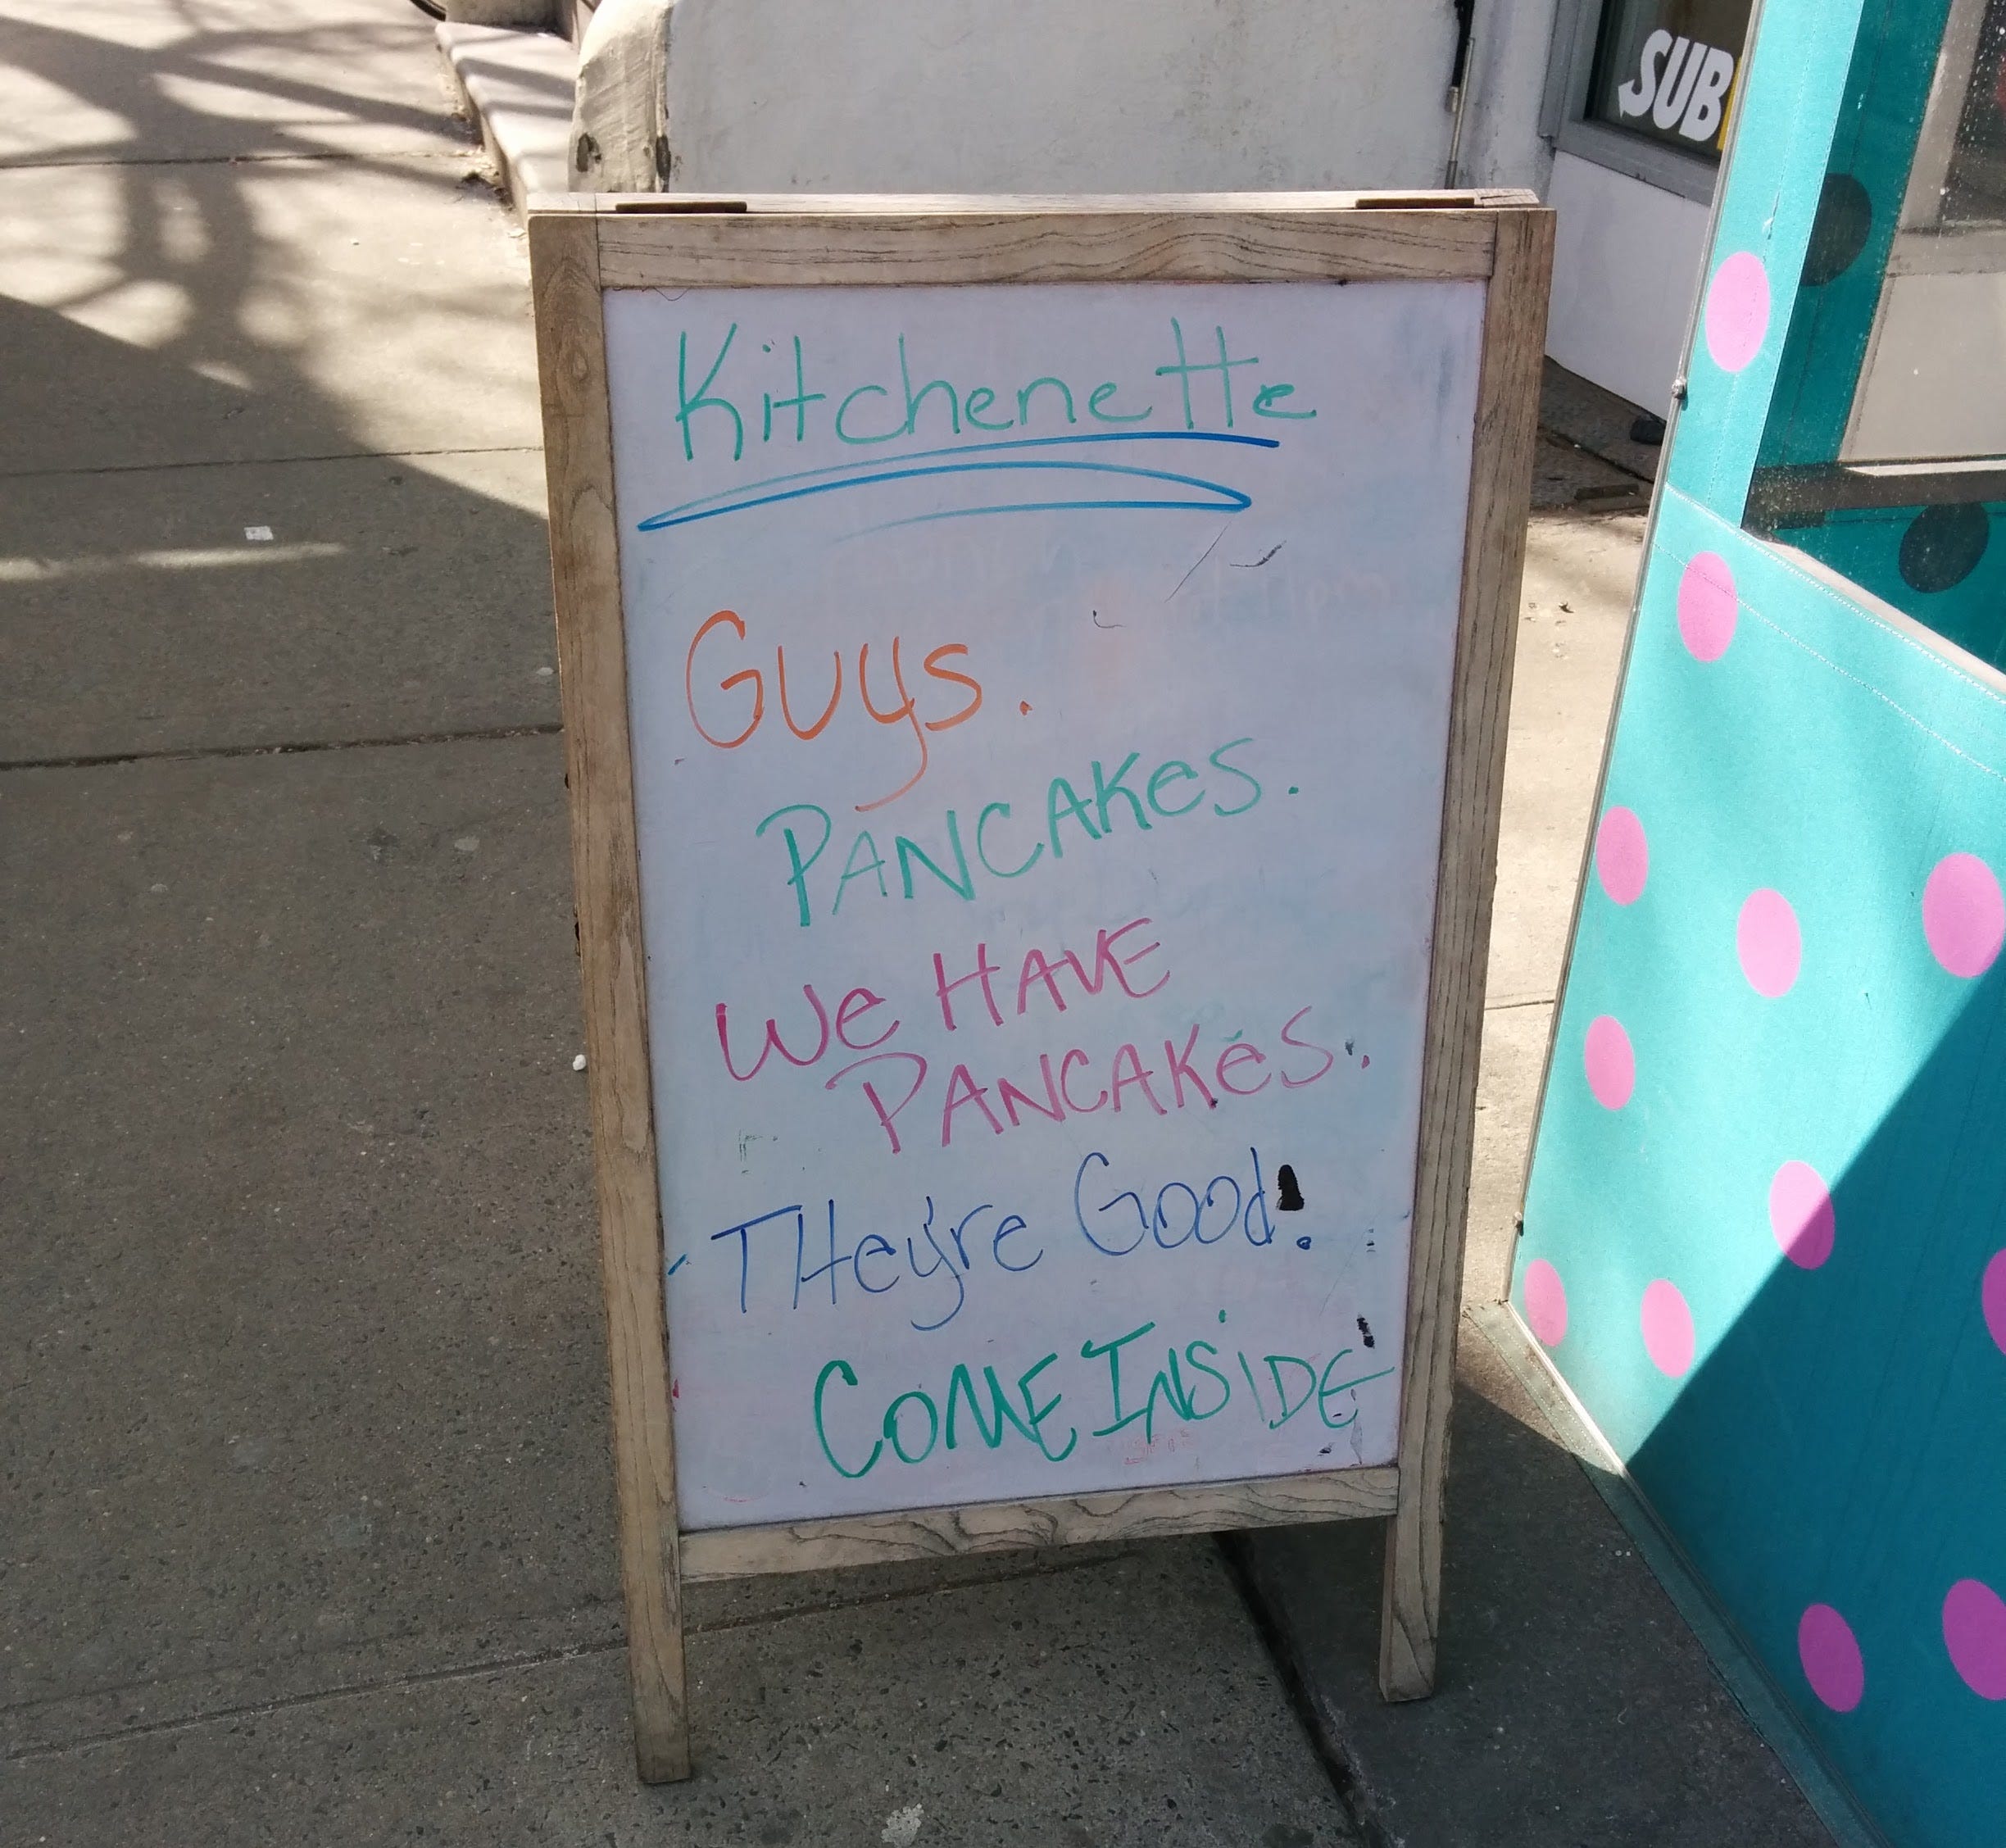 SUB
Kitchenette
Guys.
PANCAKes.
We HAVE
PANCAKes.
THey're Good!
COME INSIDE